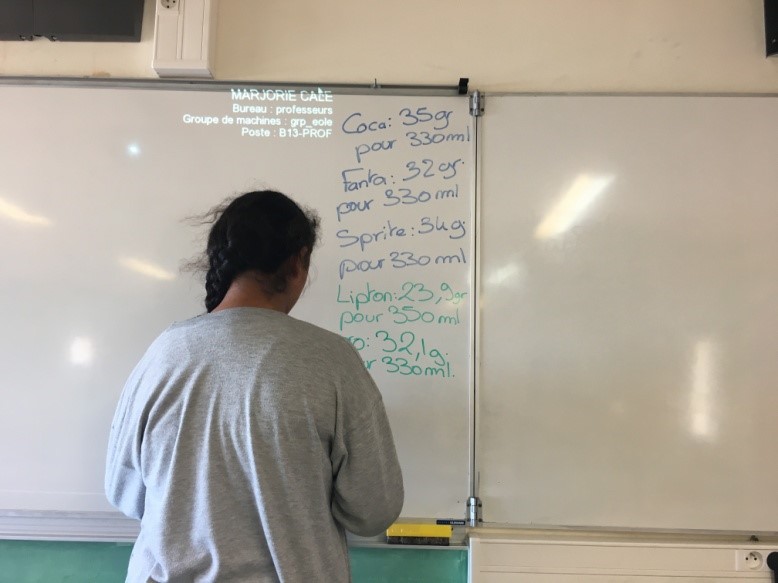 MARJORIE CALE
Bureau : professeurs
Groupe de machines : grp_eole
Poste : B13-PROF
Coca: 35gr
pour 330ml
Fanta: 32gr.
pour 330 ml
Sprite: 34g
pour 330 ml
Lipton: 23,9gr
pour 350 ml
32,1g.
330ml.